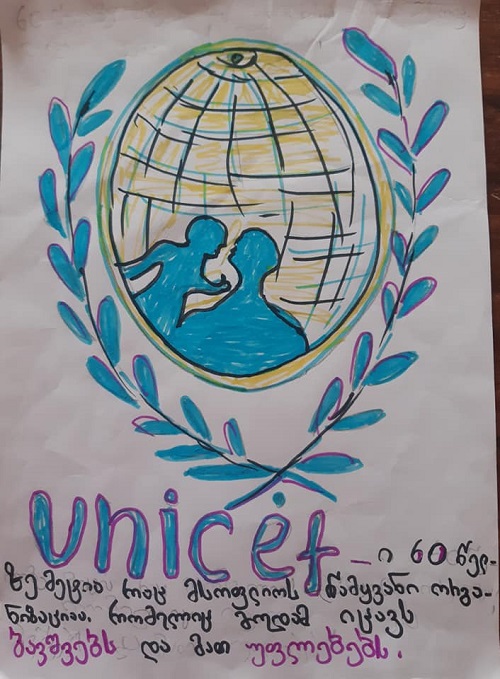 unicef – ი 60 წელ-
ზე მეტია რაც მსოფლიოს წამყვანი ორგა-
ნიზაციაა. რომელიც მუდამ იცავს
ბავშვებს და მათ უფლებებს.